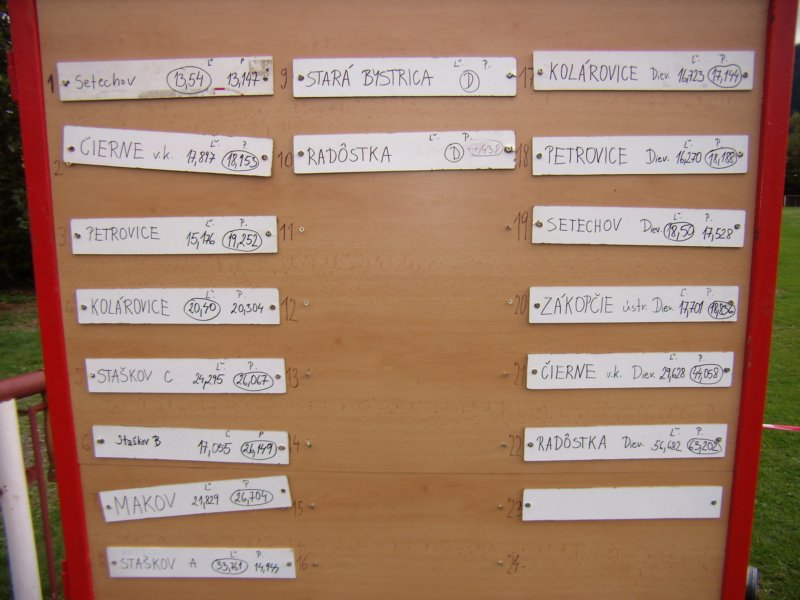 1 Setechov Ľ. 13,54 P. 13,147
2 ČIERNE v.k. Ľ. 17,817 P. 18,153
3 PETROVICE Ľ. 15,176 P. 19,252
KOLÁROVICE Ľ. 20,40 P. 20,304
5 STAŠKOV C Ľ. 24,295 P. 26,067
6 Staškov B Ľ 17,055 P 26,149
MAKOV Ľ. 21,829 P. 26,704
8 STAŠKOV A Ľ. 33,761 P. 14,944
9 STARÁ BYSTRICA Ľ. P. D
10 RADÔSTKA Ľ. P. D
11
12
13
14
15
16
17 KOLÁROVICE Diev. Ľ. 16,723 P. 17,144
18 PETROVICE Diev. Ľ. 16,270 P. 18,188
19 SETECHOV Diev. Ľ. 18,50 P. 17,528
20 ZÁKOPČIE ústr. Diev. Ľ. 17,701 P.
21 ČIERNE v.k. Diev. Ľ. 29,628 P. 44,058
22 RADÔSTKA Diev. Ľ. 56,682 P. 63,202
23
24